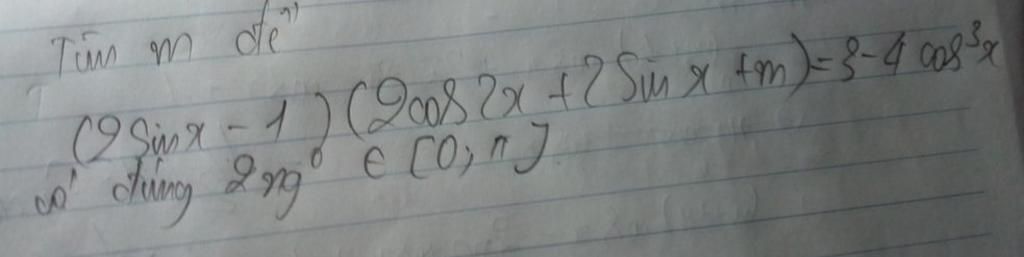 Tìm m để
(2sinx - 1)(2cos2x + 2sinx + m) = 3 - 4cos³x
có đúng 2 ngº ∈ [0; π]